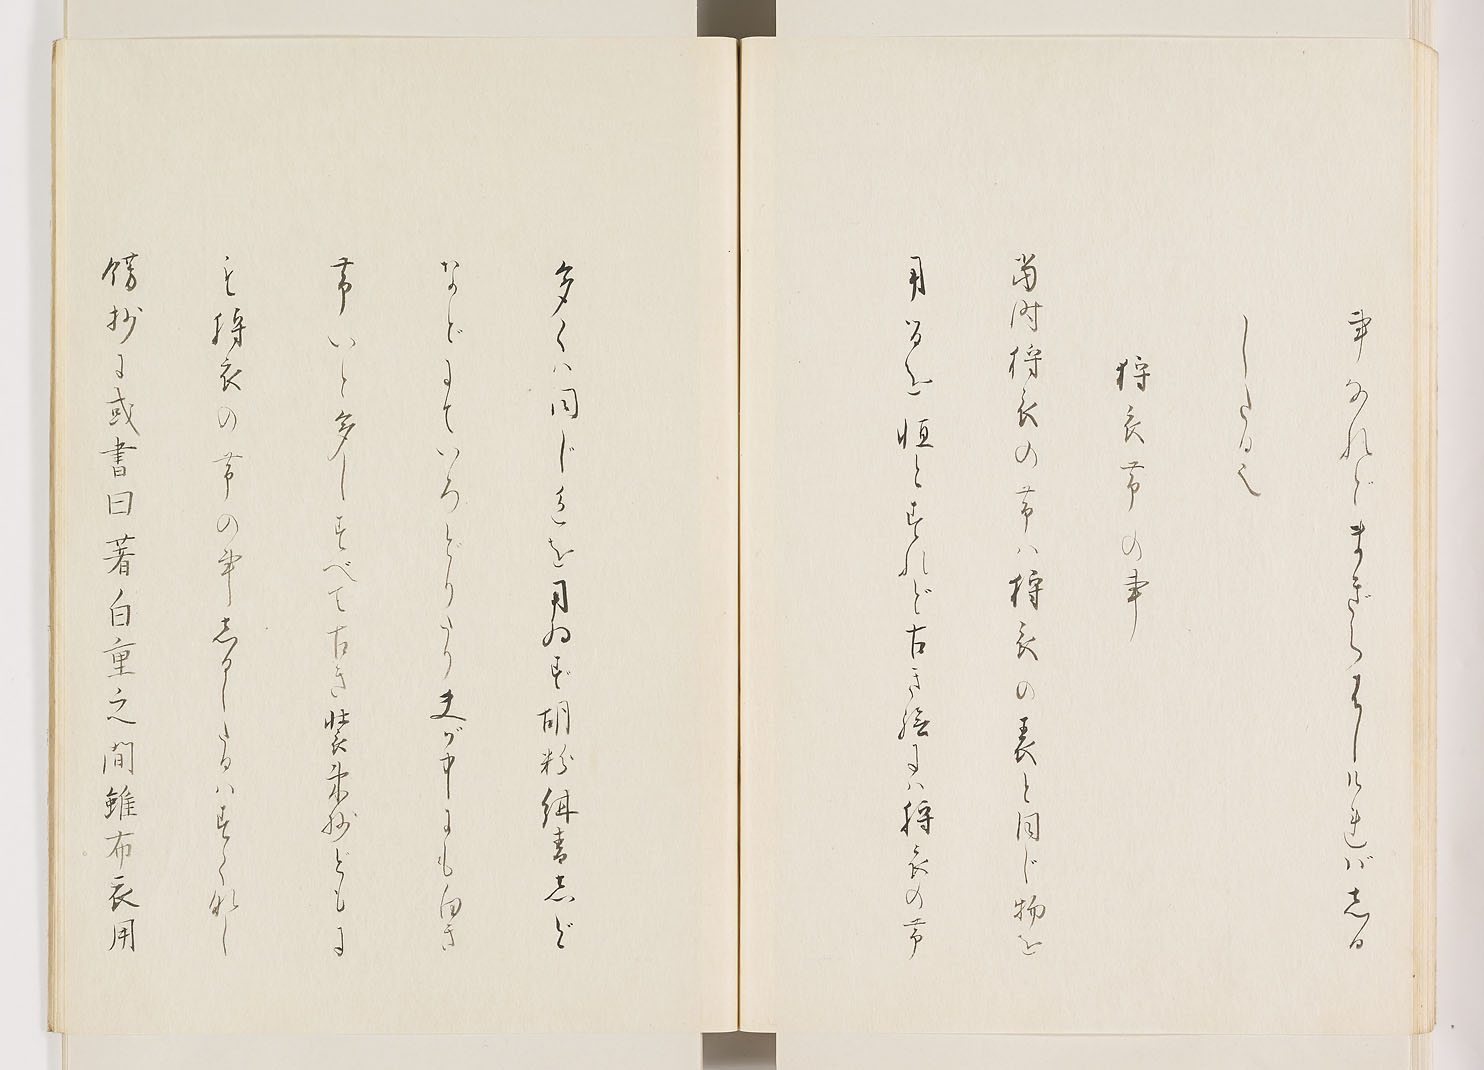 事なれどまぎらはしければしる
したる也
狩衣帯の事
当時狩衣の帯ハ狩衣の裏と同じ物を
用るを恒とすれど古き絵にハ狩衣の帯
多くハ同じ色を用ゐず胡粉紺青しど
などにていろどりたり夫が中にも白き
帯いと多しすべて古き装束抄どもに
も狩衣の帯の事しるしたるハすくなし
餝抄に或書曰著白重之間雖布衣用